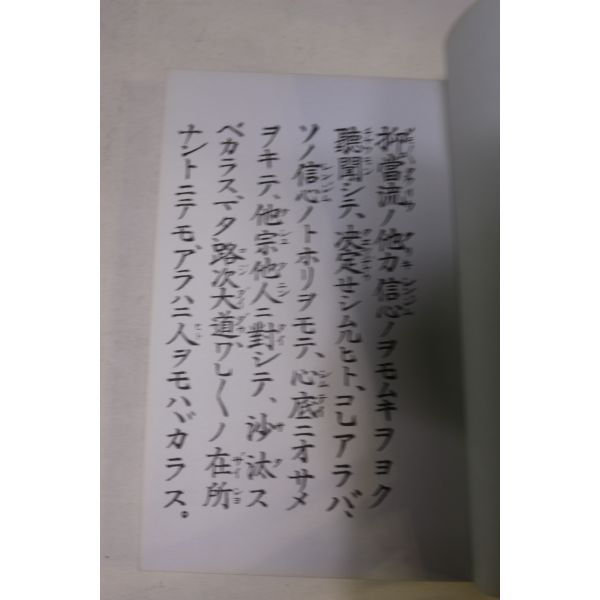 抑當流ノ他力信心ノヲモムキヲヨク
聽聞シテ、決定セシムルヒト、コレアラバ、
ソノ信心ノトホリヲモテ、心底ニオサメ
ヲキテ、他宗他人ニ對シテ、沙汰ス
ベカラス、マタ路次大道ワレ〱ノ在所
ナントニテモ、アラハニ人ヲモハヾカラス。